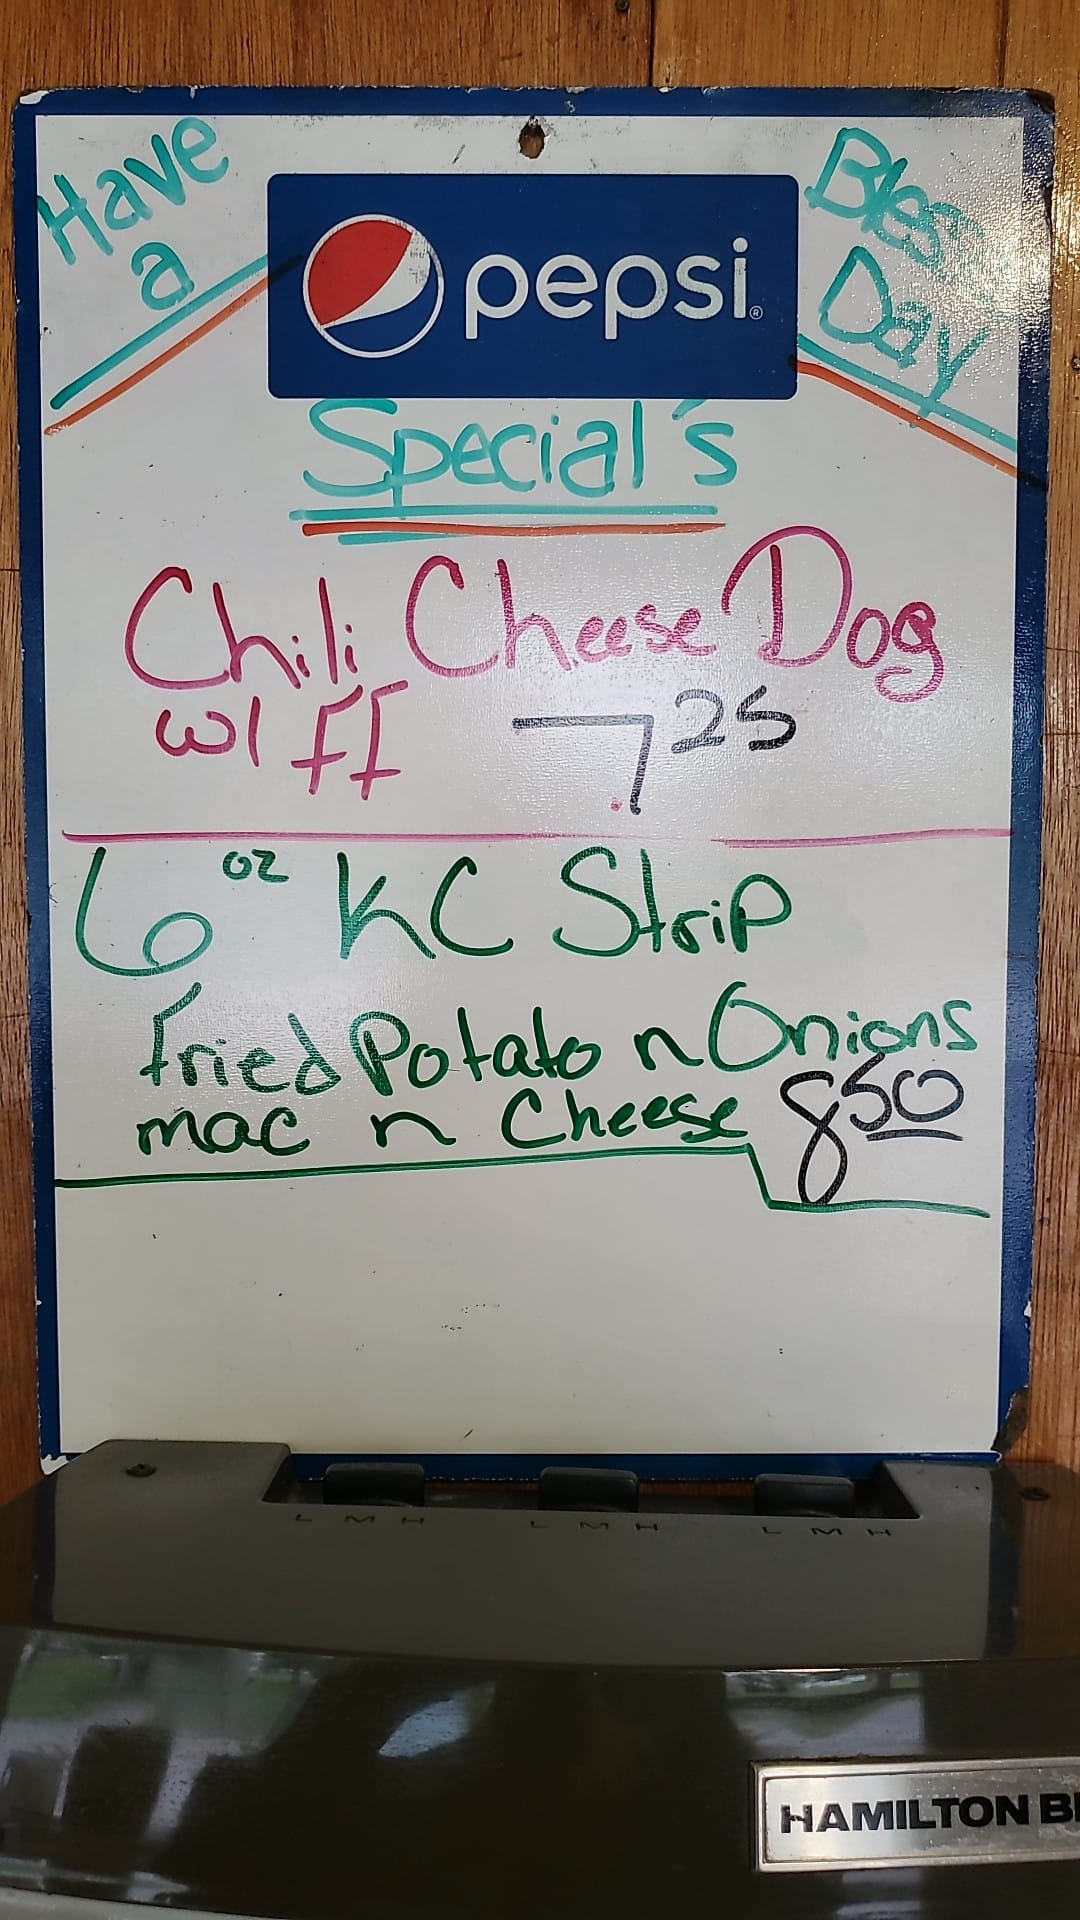 Have
a
Bless
Day
pepsi®
Special's
Chili Cheese Dog
w/ FF 7.25
6 oz KC Strip
Fried Potato n Onions
mac n Cheese 8 50
L M H L M H L M H
HAMILTON B